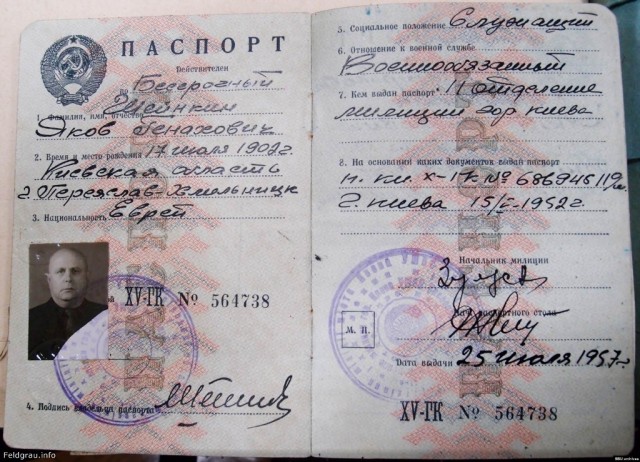 ПАСПОРТ
Действителен
по Бессрочный
1. Фамилия, имя, отчество Шейнкин
Яков Генахович
2. Время и место рождения 17 июля 1902 г
Киевская область
г. Переяслав-Хмельницк
3. Национальность Еврей
XV-ГК № 564738
4. Подпись владельца паспорта
5. Социальное положение Служащий
6. Отношение к военной службе
Военнообязанный
7. Кем выдан паспорт 11 отделение
милиции гор Киева
8. На основании каких документов выдан паспорт
п. кн. X-ГК № 686945
г. Киева 15/I-1952 г.
Начальник милиции
Нач. паспортного стола
М. П.
Дата выдачи 25 июля 1957 г.
XV-ГК № 564738
Feldgrau.info